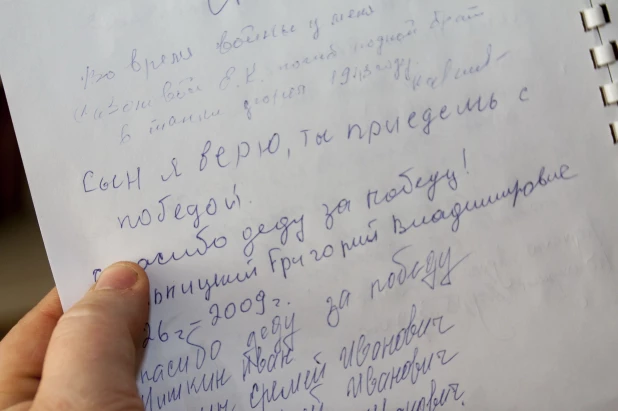 Во время войны у меня
погиб родной брат
в танке 1943 году.
Сын я верю, ты приедешь с
победой.
Спасибо деду за победу!
Григорий Владимирович
26г – 2009г.
спасибо деду за победу
Шишкин Иван
Еремей Иванович
Иванович